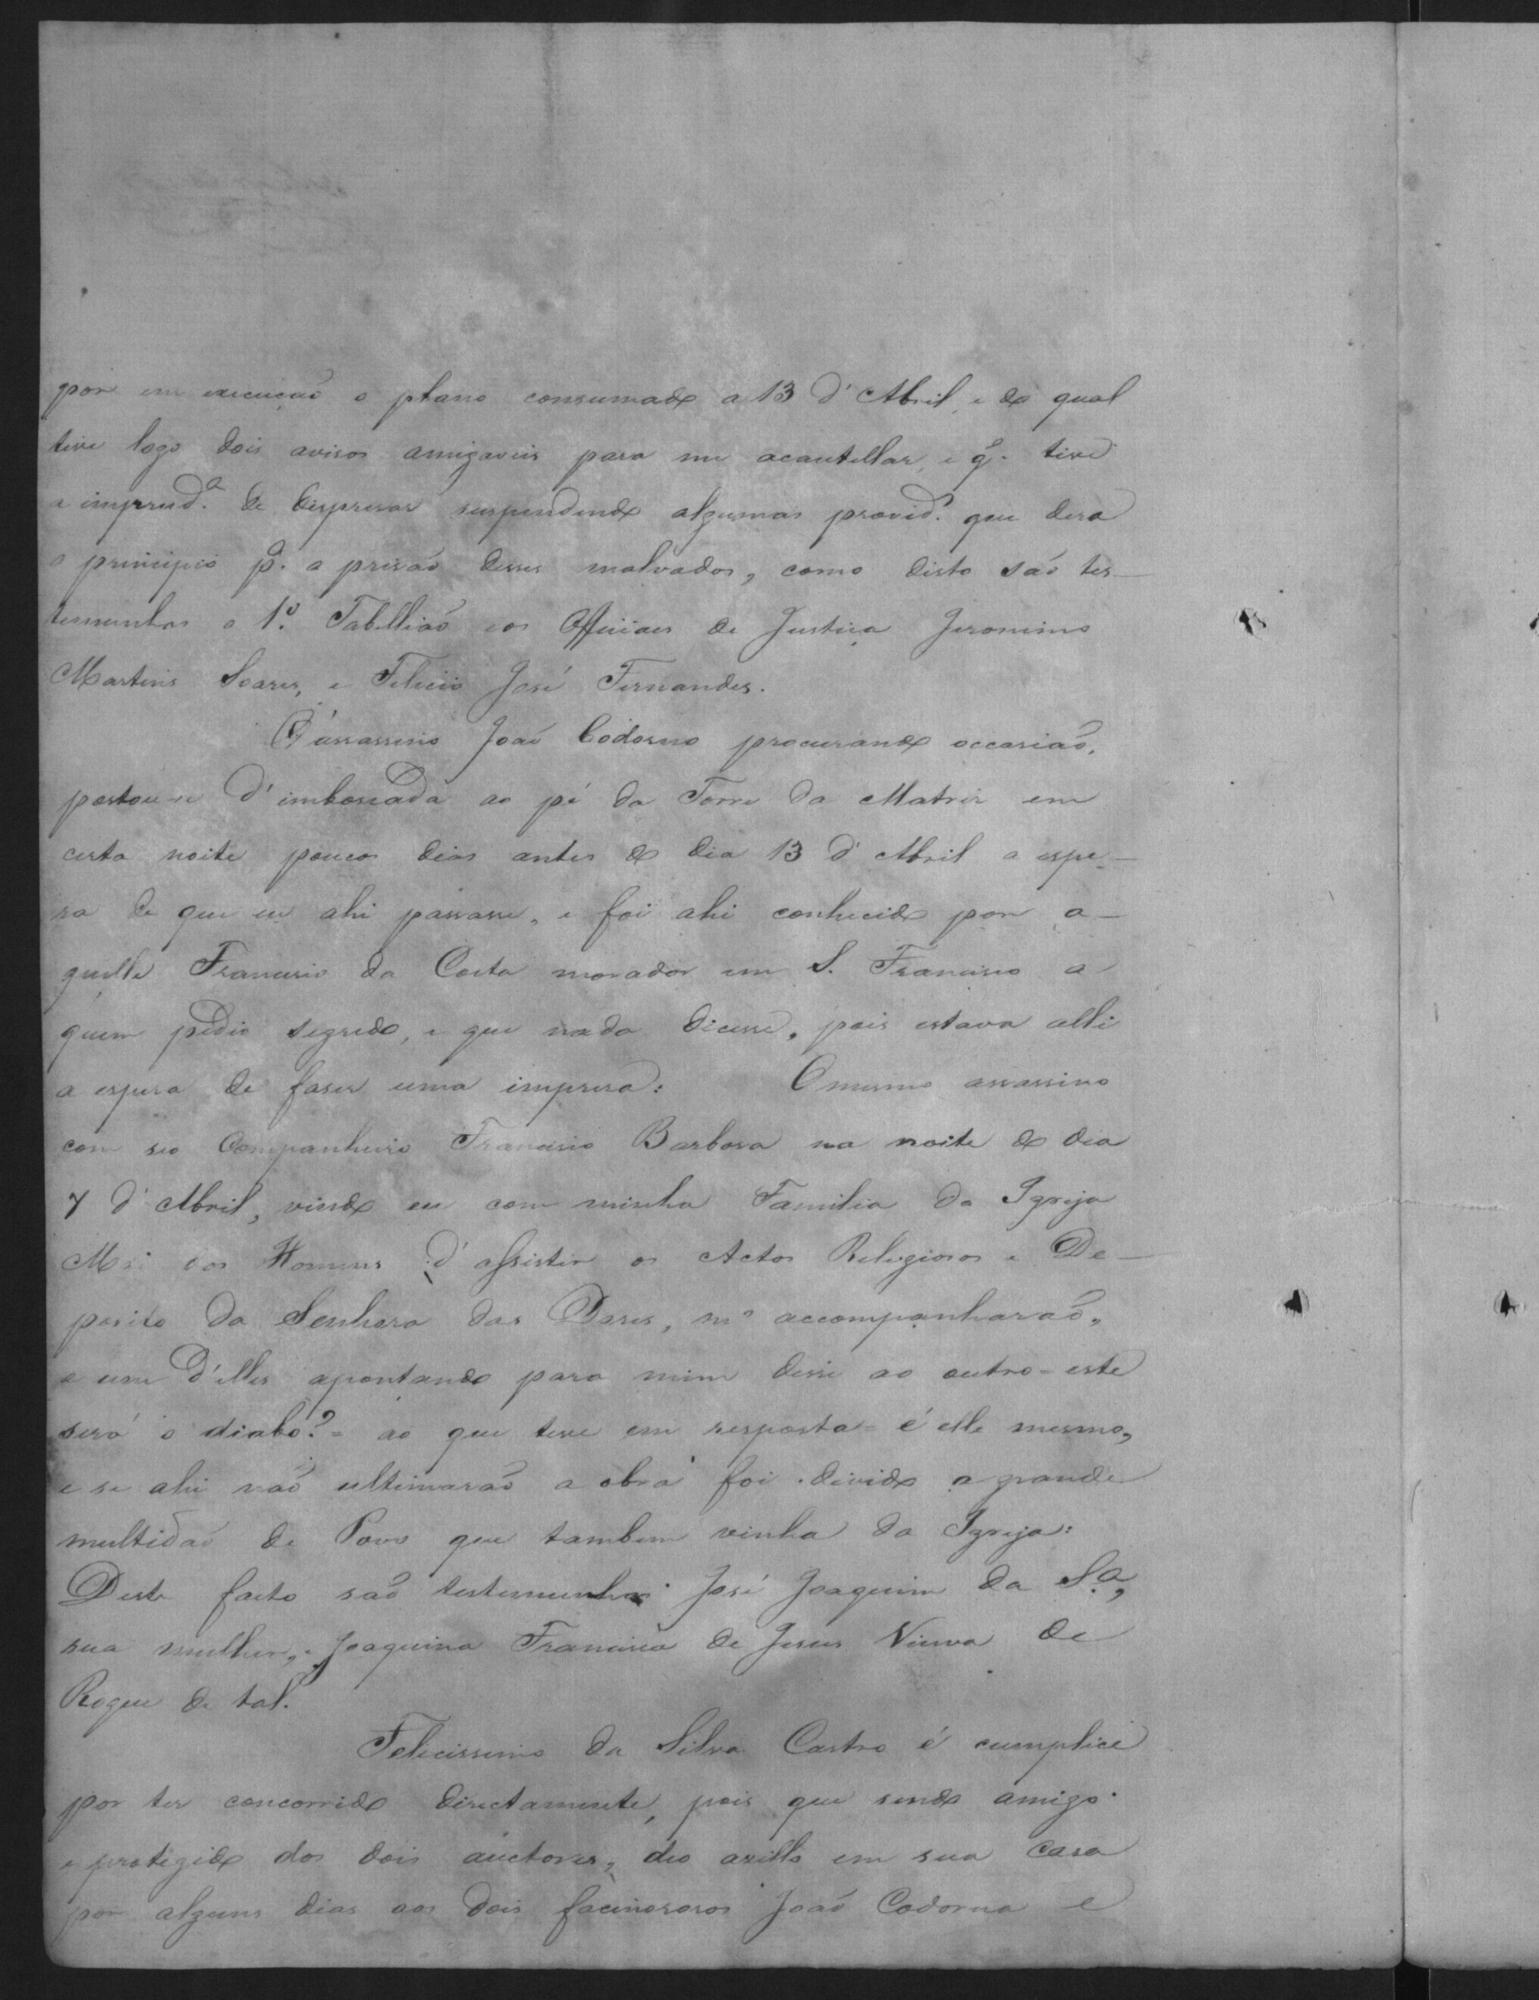 por em execuçaõ o plano consumado a 13 d'Abril, e do qual
tive logo dois avisos amigaveis para me acautellar, e q.̃ tive
a imprud.ª de despresar suspendendo algumas provid.ª que dera
o principio p.ª a prisaõ desses malvados, como disto saõ tes-
temunhas o 1.º Tabelliaõ e os Officiaes de Justiça Jeronimo
Martins Soares, e Felicio José Fernandes.
O assassino Joaõ Codorno procurando occasiaõ,
postou-se d'imboscada ao pé da Torre da Matriz em
certa noite poucos dias antes do dia 13 d'Abril a espe-
ra de que eu ahi passasse, e foi ahi conhecido por a-
quelle Francisco da Costa morador em S. Francisco a
quem pedio segredo, e que nada dicesse, pois estava alli
a espera de faser uma impresa: O mesmo assassino
com seo Companheiro Francisco Barbosa na noite do dia
7 d'Abril, vindo eu com minha Familia da Igreja
Mãi dos Homens d'assistir os Actos Religiosos e De-
posito da Senhora das Dores, me accompanharaõ,
e um d'elles apontando para mim disse ao outro = este
será o diabo? = ao que teve em resposta = é elle mesmo,
e se ahi naõ ultimaraõ a obra foi devido a grande
multidaõ de Povo que tambem vinha da Igreja:
Deste facto saõ testemunhas José Joaquim da S.ª,
sua mulher, e Joaquina Francisca de Jesus Viuva de
Roque de tal.
Felicissimo da Silva Castro é cumplice
por ter concorrido directamente, pois que sendo amigo
e protegido dos dois auctores, deo asillo em sua casa
por alguns dias aos dois facinorosos Joaõ Codorna e